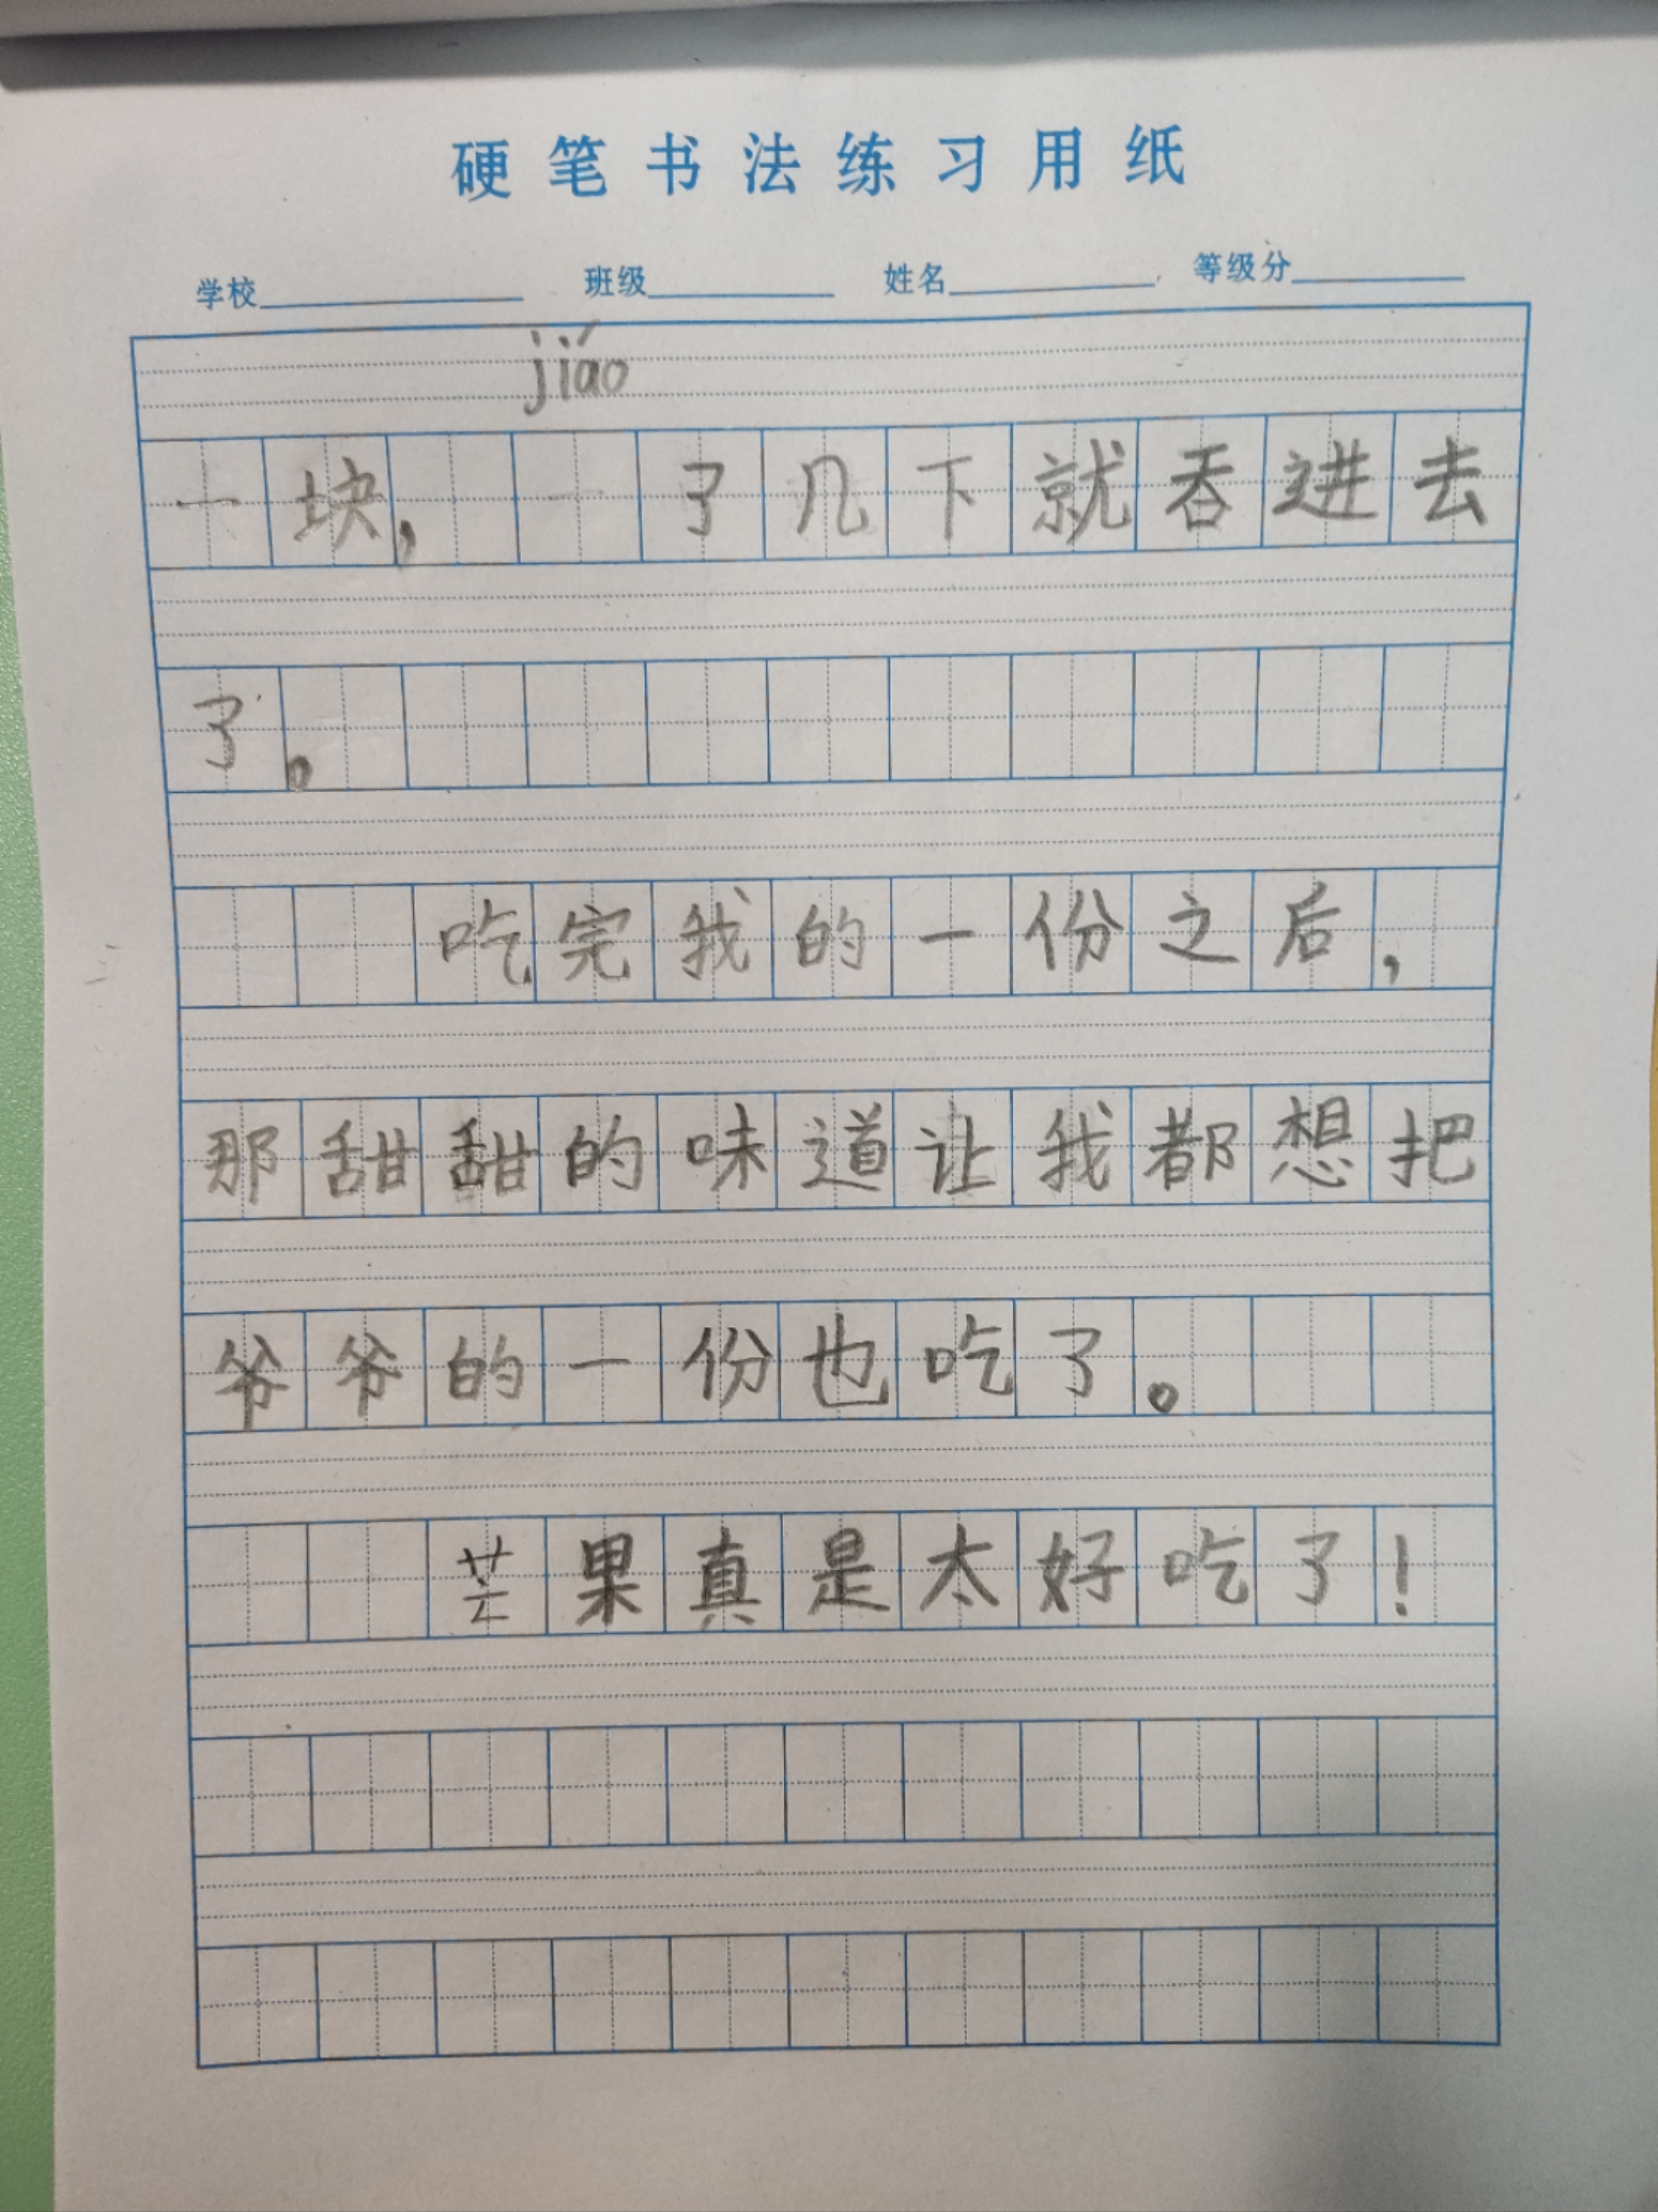 硬笔书法练习用纸
学校 班级 姓名 等级分
jiáo
一块， 了几下就吞进去
了。
吃完我的一份之后，
那甜甜的味道让我都想把
爷爷的一份也吃了。
芒果真是太好吃了！